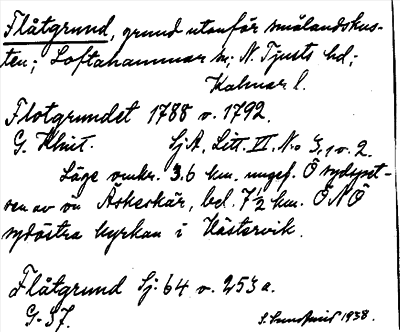 Flåtgrund, grund utanför smålandskus-
ten; Loftahammar sn; N. Tjusts hd;
Kalmar l.
Flotgrundet 1788 o. 1792.
G. Klint. SjA, Litt. VI, No 3, 1 o. 2.
Läge omkr. 3.6 km. ungef. Ö sydspet-
sen av ön Äskeskär, bel. 7 1/2 km. ÖNÖ
sydöstra kyrkan i Västervik.
Flåtgrund Sj: 64 o. 253 a.
G-37. 1938.